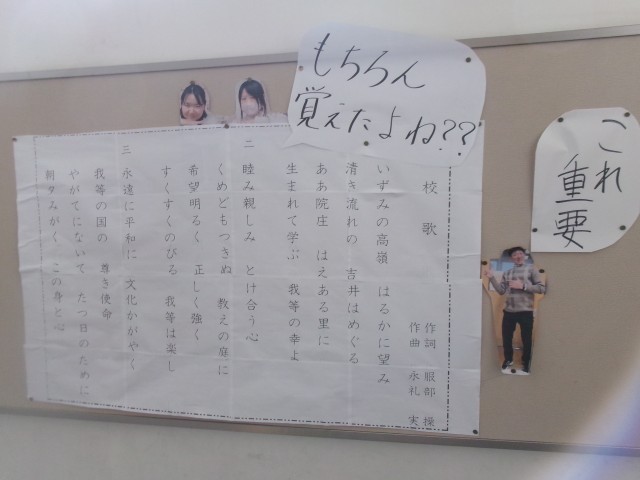 もちろん
覚えたよね??
これ
重要
校歌
作詞 服部 操
作曲 永礼 実
いずみの高嶺 はるかに望み
清き流れの 吉井はめぐる
ああ院庄 はえある里に
生まれて学ぶ 我等の幸よ
二 睦み親しみ とけ合う心
くめどもつきぬ 教えの庭に
希望明るく 正しく強く
すくすくのびる 我等は楽し
三 永遠に平和に 文化かがやく
我等の国の 尊き使命
やがてにないて たつ日のために
朝夕みがく この身と心